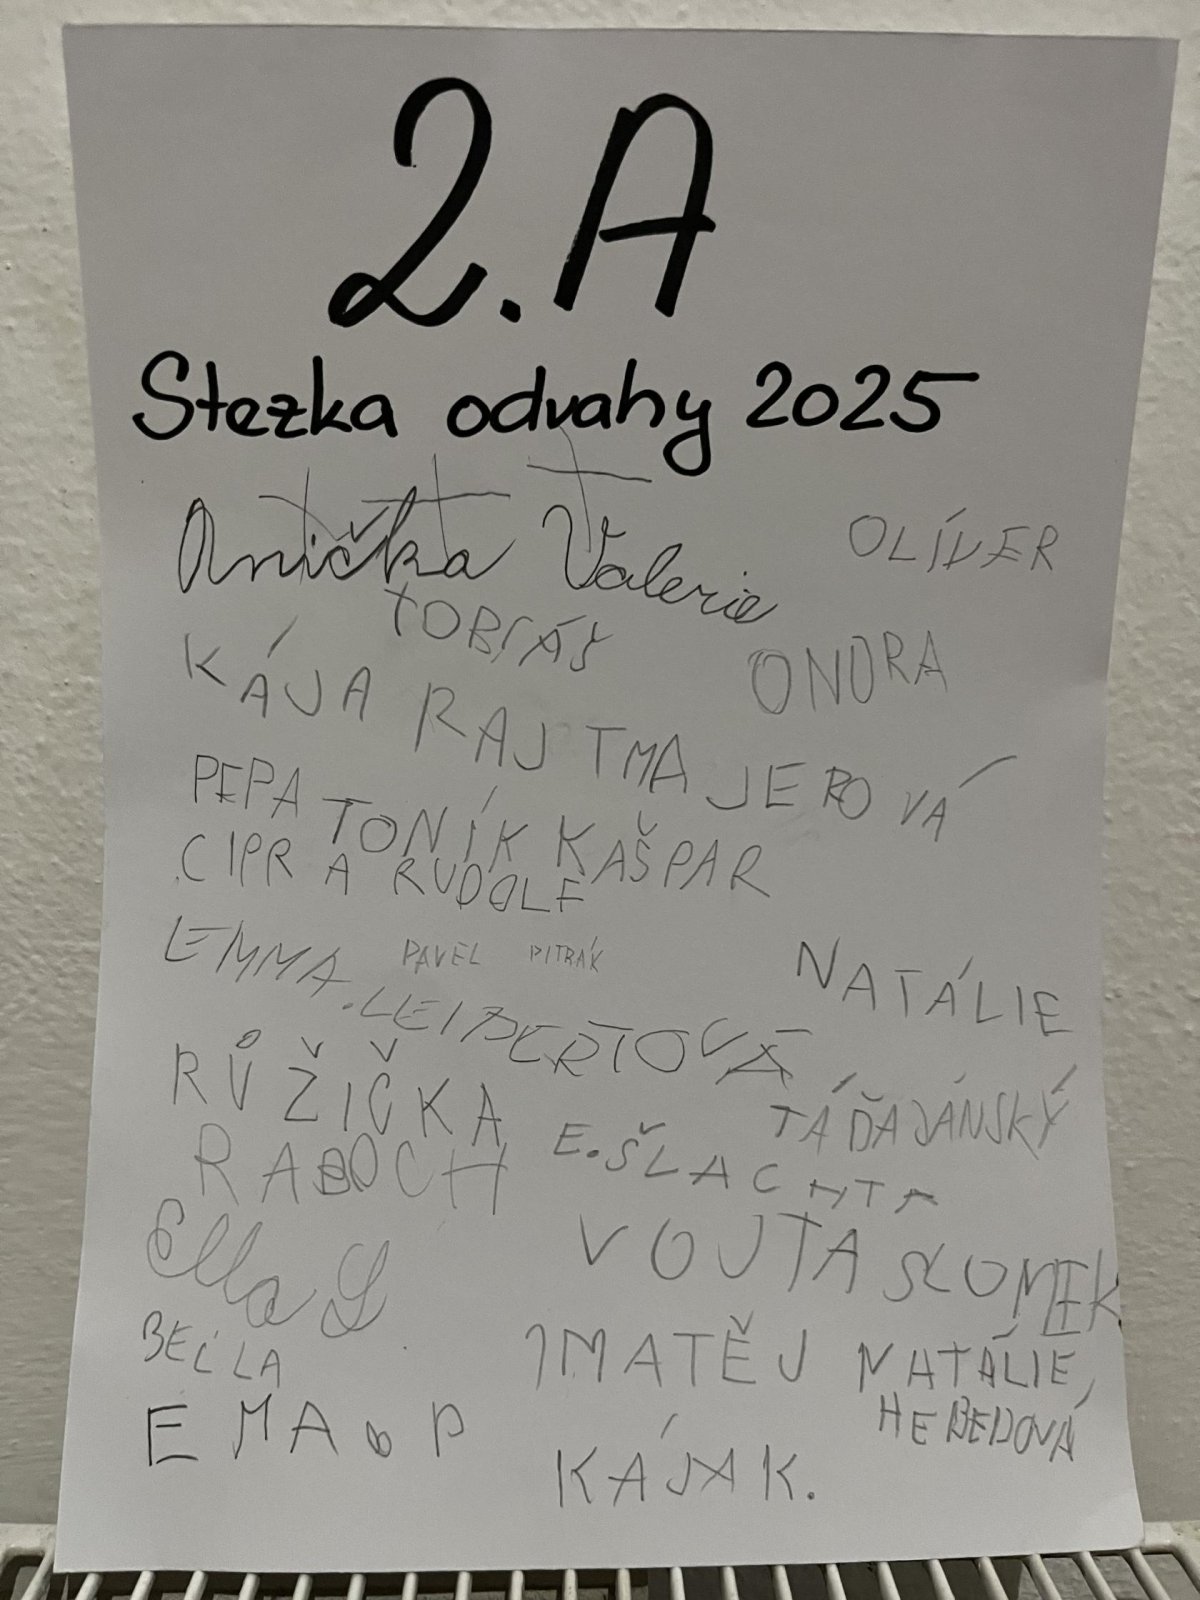 2.A
Stezka odvahy 2025
Anička Valerie OLÍVER
TOBIÁŠ ONDRA
KÁJA RAJTMAJEROVÁ
PEPA TONÍK KAŠPAR
CIPR A RUDOLF
EMMA.LEIPERTOVÁ
PAVEL PITRÁK
NATÁLIE
RŮŽIČKA
RABOCH
E.ŠLACHTA
Ella S
VOJTA SLOMEK
BELLA
MATĚJ NATÁLIE,
EMA P
KÁJA K.